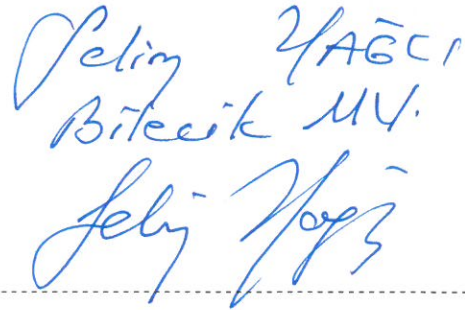 Selim YAĞCI
Bilecik MV.
Selim Yağcı